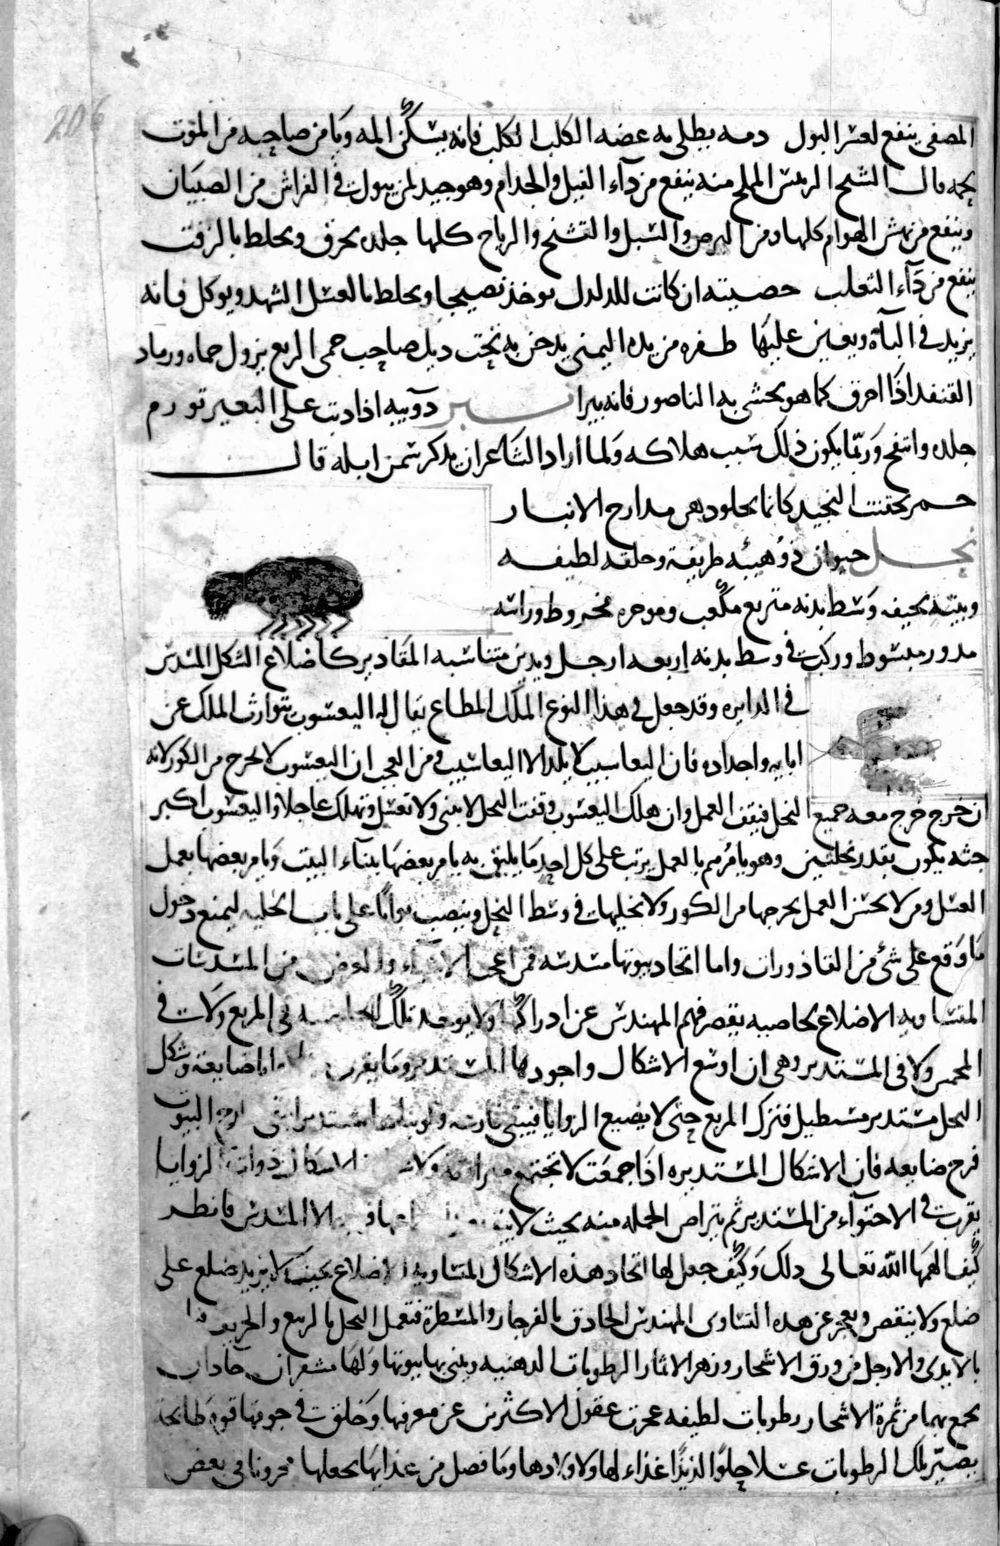 206
المصفى ينفع لعسر البول دمه يطلى به عضة الكلب الكلب فانه يسكن المه ويامن صاحبه من الموت
لحمه قال الشيخ الرئيس المملح منه ينفع من داء الفيل والجذام وهو جيد لمن يبول في الفراش من الصبيان
وينفع من نهش الهوام كلها ومن البرص والسل والتشنج والرياح كلها جلده يحرق ويخلط بالزفت
ينفع من داء الثعلب خصيته ان كانت للدلدل يوخذ نصيجا ويخلط بالعسل الشهد ويوكل فانه
يزيد في الباة ويعين عليها ظفره من يده اليمنى يدخن به تحت ذيل صاحب حمى الربع يزول حماه ورماد
القنفد اذا احرق كما هو يحشى به الناصور فانه يبرا نبر دويبه اذا دبت على البعير تورم
جلده وانتفخ وربما يكون ذلك سبب هلاكه ولما اراد الشاعر ان يذكر سمن ابله قال
حمر تحقنت النجيد كانما بجلودهن مدارج الانبار
نحل حيوان ذو هيئه ظريفة وخلقه لطيفه
وبنيه نحيفه وسط بدنه متربع مكعب وموخره مخروط وراسه
مدور مبسوط وركبت في وسط بدنه اربعه ارجل ويدين متناسبه المقادير كاضلاع الشكل المسدس
في الدايره وقد جعل في هذا النوع الملك المطاع يقال له اليعسوب يتوارث الملك عن
ابايه واجداده فان اليعاسيب لا يلد الا اليعاسيب ومن العجب ان اليعسوب لا يخرج من الكور لانه
ان خرج خرج معه جميع النحل فيقف العمل وان هلك اليعسوب وقفت النحل لا تبنى ولا تعسل وتهلك عاجلا واليعسوب اكبر
جثه يكون بقدر نحلتين وهو يامرهم بالعمل يرتب على كل احد ما يليق به يامر بعضها ببناء البيت ويامر بعضها بعمل
العسل ومن لا يحسن العمل يخرجها من الكور ولا يخليها في وسط النحل وينصب بوابا على باب الخليه ليمنع دخول
ما وقع على شئ من القاذورات واما اتخاذ بيوتها مسدسه فمن اعجب الاشياء والغرض من المسدسات
المتساويه الاضلاع بخاصيه يقصر فهم المهندس عن ادراكها ولا يوجد تلك الخاصيه في المربع ولا في
المخمس ولا في المستدير وهي ان اوسع الاشكال واجودها المستدير وما يقرب منه اما ضايعة وشكل
النحل مستدير مستطيل فترك المربع حتى لا يضيع الزوايا فيبقى فارغه ولو بناها مستديرا لبقى خارج البيوت
فرج ضايعه فان الاشكال المستديره اذا جمعت لا تجتمع متراصه ولا شكل من الاشكال ذوات الزوايا
يقرب في الاحتواء من المستدير ثم يتراص الجمله منه بحيث لا يبقى بعد اجتماعها فرجه الا المسدس فانظر
كيف الهمها الله تعالى ذلك وكيف جعل لها اتخاذ هذه الاشكال المتساويه الاضلاع بحيث لا يزيد ضلع على
ضلع ولا ينقص ويعجز عن هذه التساوى المهندس الحاذق بالفرجار والمسطرة فتعمل النحل بالربيع والخريف
بالايدى والارجل من ورق الاشجار وزهر الاثمار الرطوبات الدهنيه ويبنى بها بيوتها ولها مشفران حادان
يجمع بهما من ثمرة الاشجار رطوبات لطيفه عجزت عقول الاكثرين عن معرفتها وخلق في جوفها قوة طابخة
يصير تلك الرطوبات عسلا حلوا لذيذا غذاء لها ولاولادها وما فضل من غذايها يجعلها مخزونا في بعض